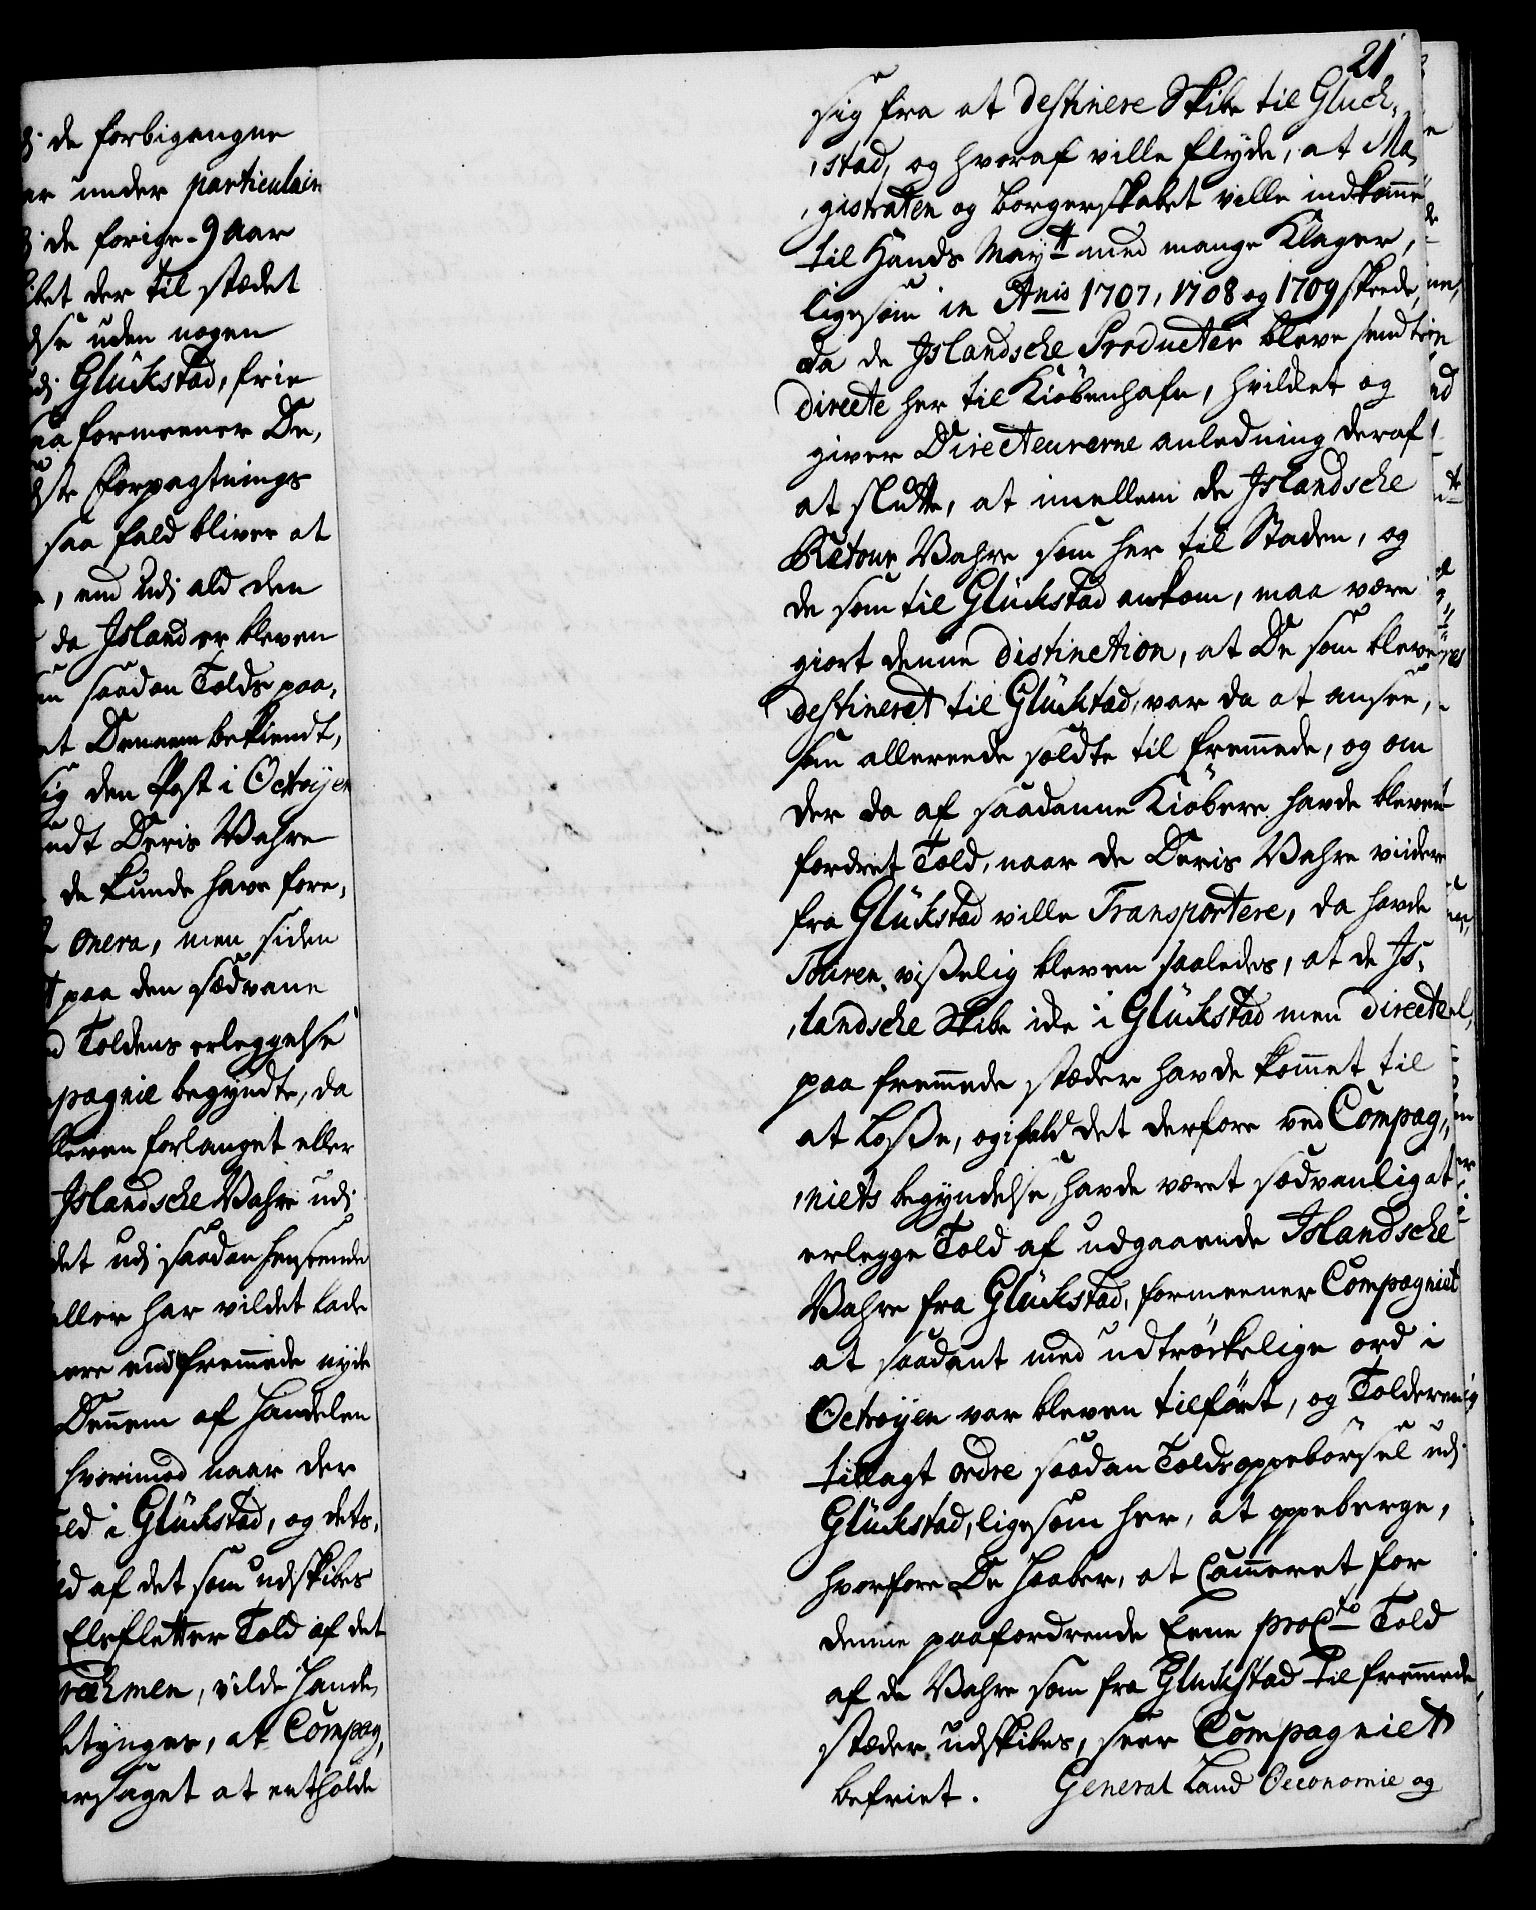 j de forbigangne
ar under particulair
j de forige 9 Aar
ibet der til stædet
lse uden nogen
udj Glückstad, frie
aa formeener De,
ste Forpagtnings
saa fald bliver at
, end udj ald den
da Jsland er bleven
en saadan Tolds paa,
et Dennem bekiendt,
sig den Post i Octroyen
ndt Deris Vahre
de kunde have fore,
onera, men siden
t paa den sædvane
d Toldens erleggelse
pagnie begyndte, da
leven forlanget eller
Jslandsche Vahre udj
det udj saadan henseende
eller har vildet lade
ere end fremmede nyde
Dennem af Handelen
hvorimod naar der
old i Glückstad, og dets,
ld af det som udskibes
Elsfletter Told af det
ræhmen, vilde Hande,
betynges, at Compag,
ersaget at entholde
21
sig fra at destinere Skibe til Gluck,
,stad, og hvoraf ville flyde, at Ma,
,gistraten og Borgerskabet ville indkomme
til Hands Mayᵗᵗ med mange Klager,
ligesom in Anis 1707, 1708 og 1709 skeede,
da de Jslandsche Producter bleve sendt
directe her til Kiöbenhafn, hvilcket og
giver Directeurerne anledning deraf
at slutte, at imellem de Jslandsche
Retour Vahre som her til Staden, og
de som til Glückstad ankom, maa være
giort denne distinction, at De som bleve
destineret til Glückstad, var da at ansee,
som allereede soldte til fremmede, og om
der da af saadanne Kiöbere havde bleven
fordret Told, naar de Deris Vahre viidere
fra Glückstad ville Transportere, da havde
Touren visselig bleven saaledes, at de Js,
,landsche Skibe icke i Glückstad men directe
paa fremmede stæder havde kommet til
at Losse, og ifald det derfore ved Compag,,
,niets begyndelse, havde været sædvanlig at
erlegge Told af udgaaende Jslandsche
Vahre fra Glückstad, formeener Compagniet
at saadant med udtröckelige ord i
Octroyen var bleven tilfört, og Tolderen
tillagt ordre saadan Tolds oppebörsel udj
Glückstad, ligesom her, at oppeberge,
hvorfore De Haaber, at Cammeret for
denne paafordrende Eene proCᵗᵒ Told
af de Vahre som fra Gluckstad til fremmede
stæder udskibes, seer Compagniet
befriet. General Land Oeconomie og